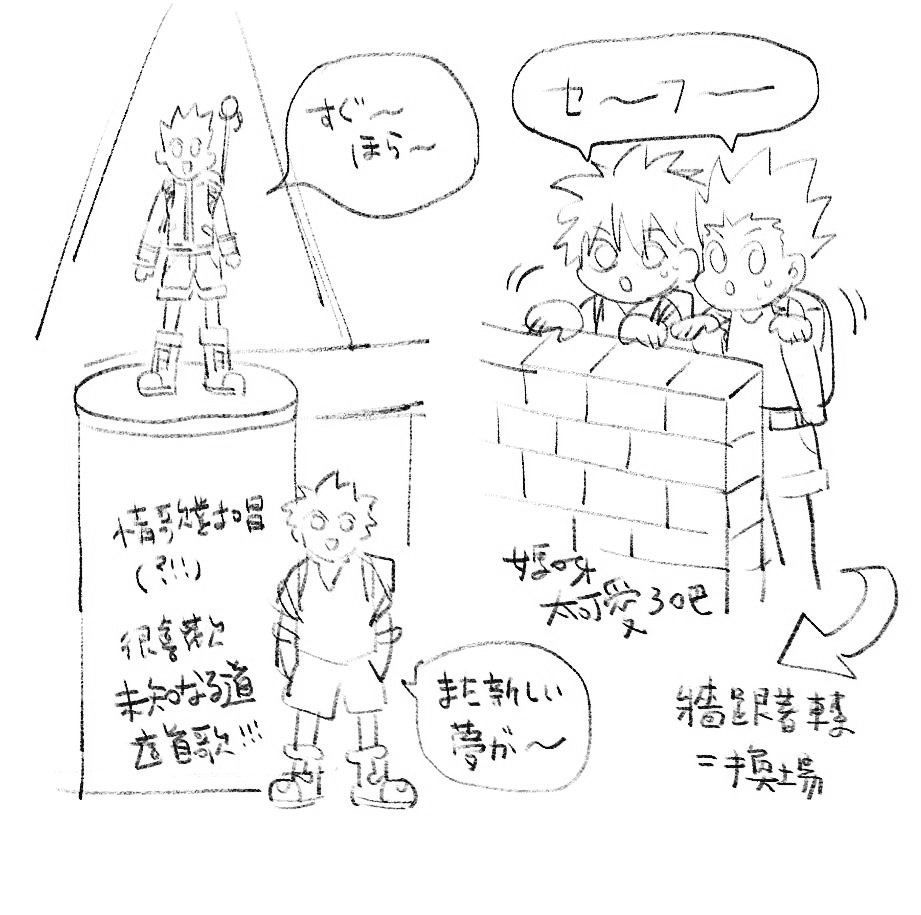 すぐ〜
ほら〜
セ〜フー
情歌對唱
(?!!!)
很喜歡
未知なる道
這首歌!!!
また新しい
夢が〜
媽呀
太可愛了吧
牆跟著轉
=換場